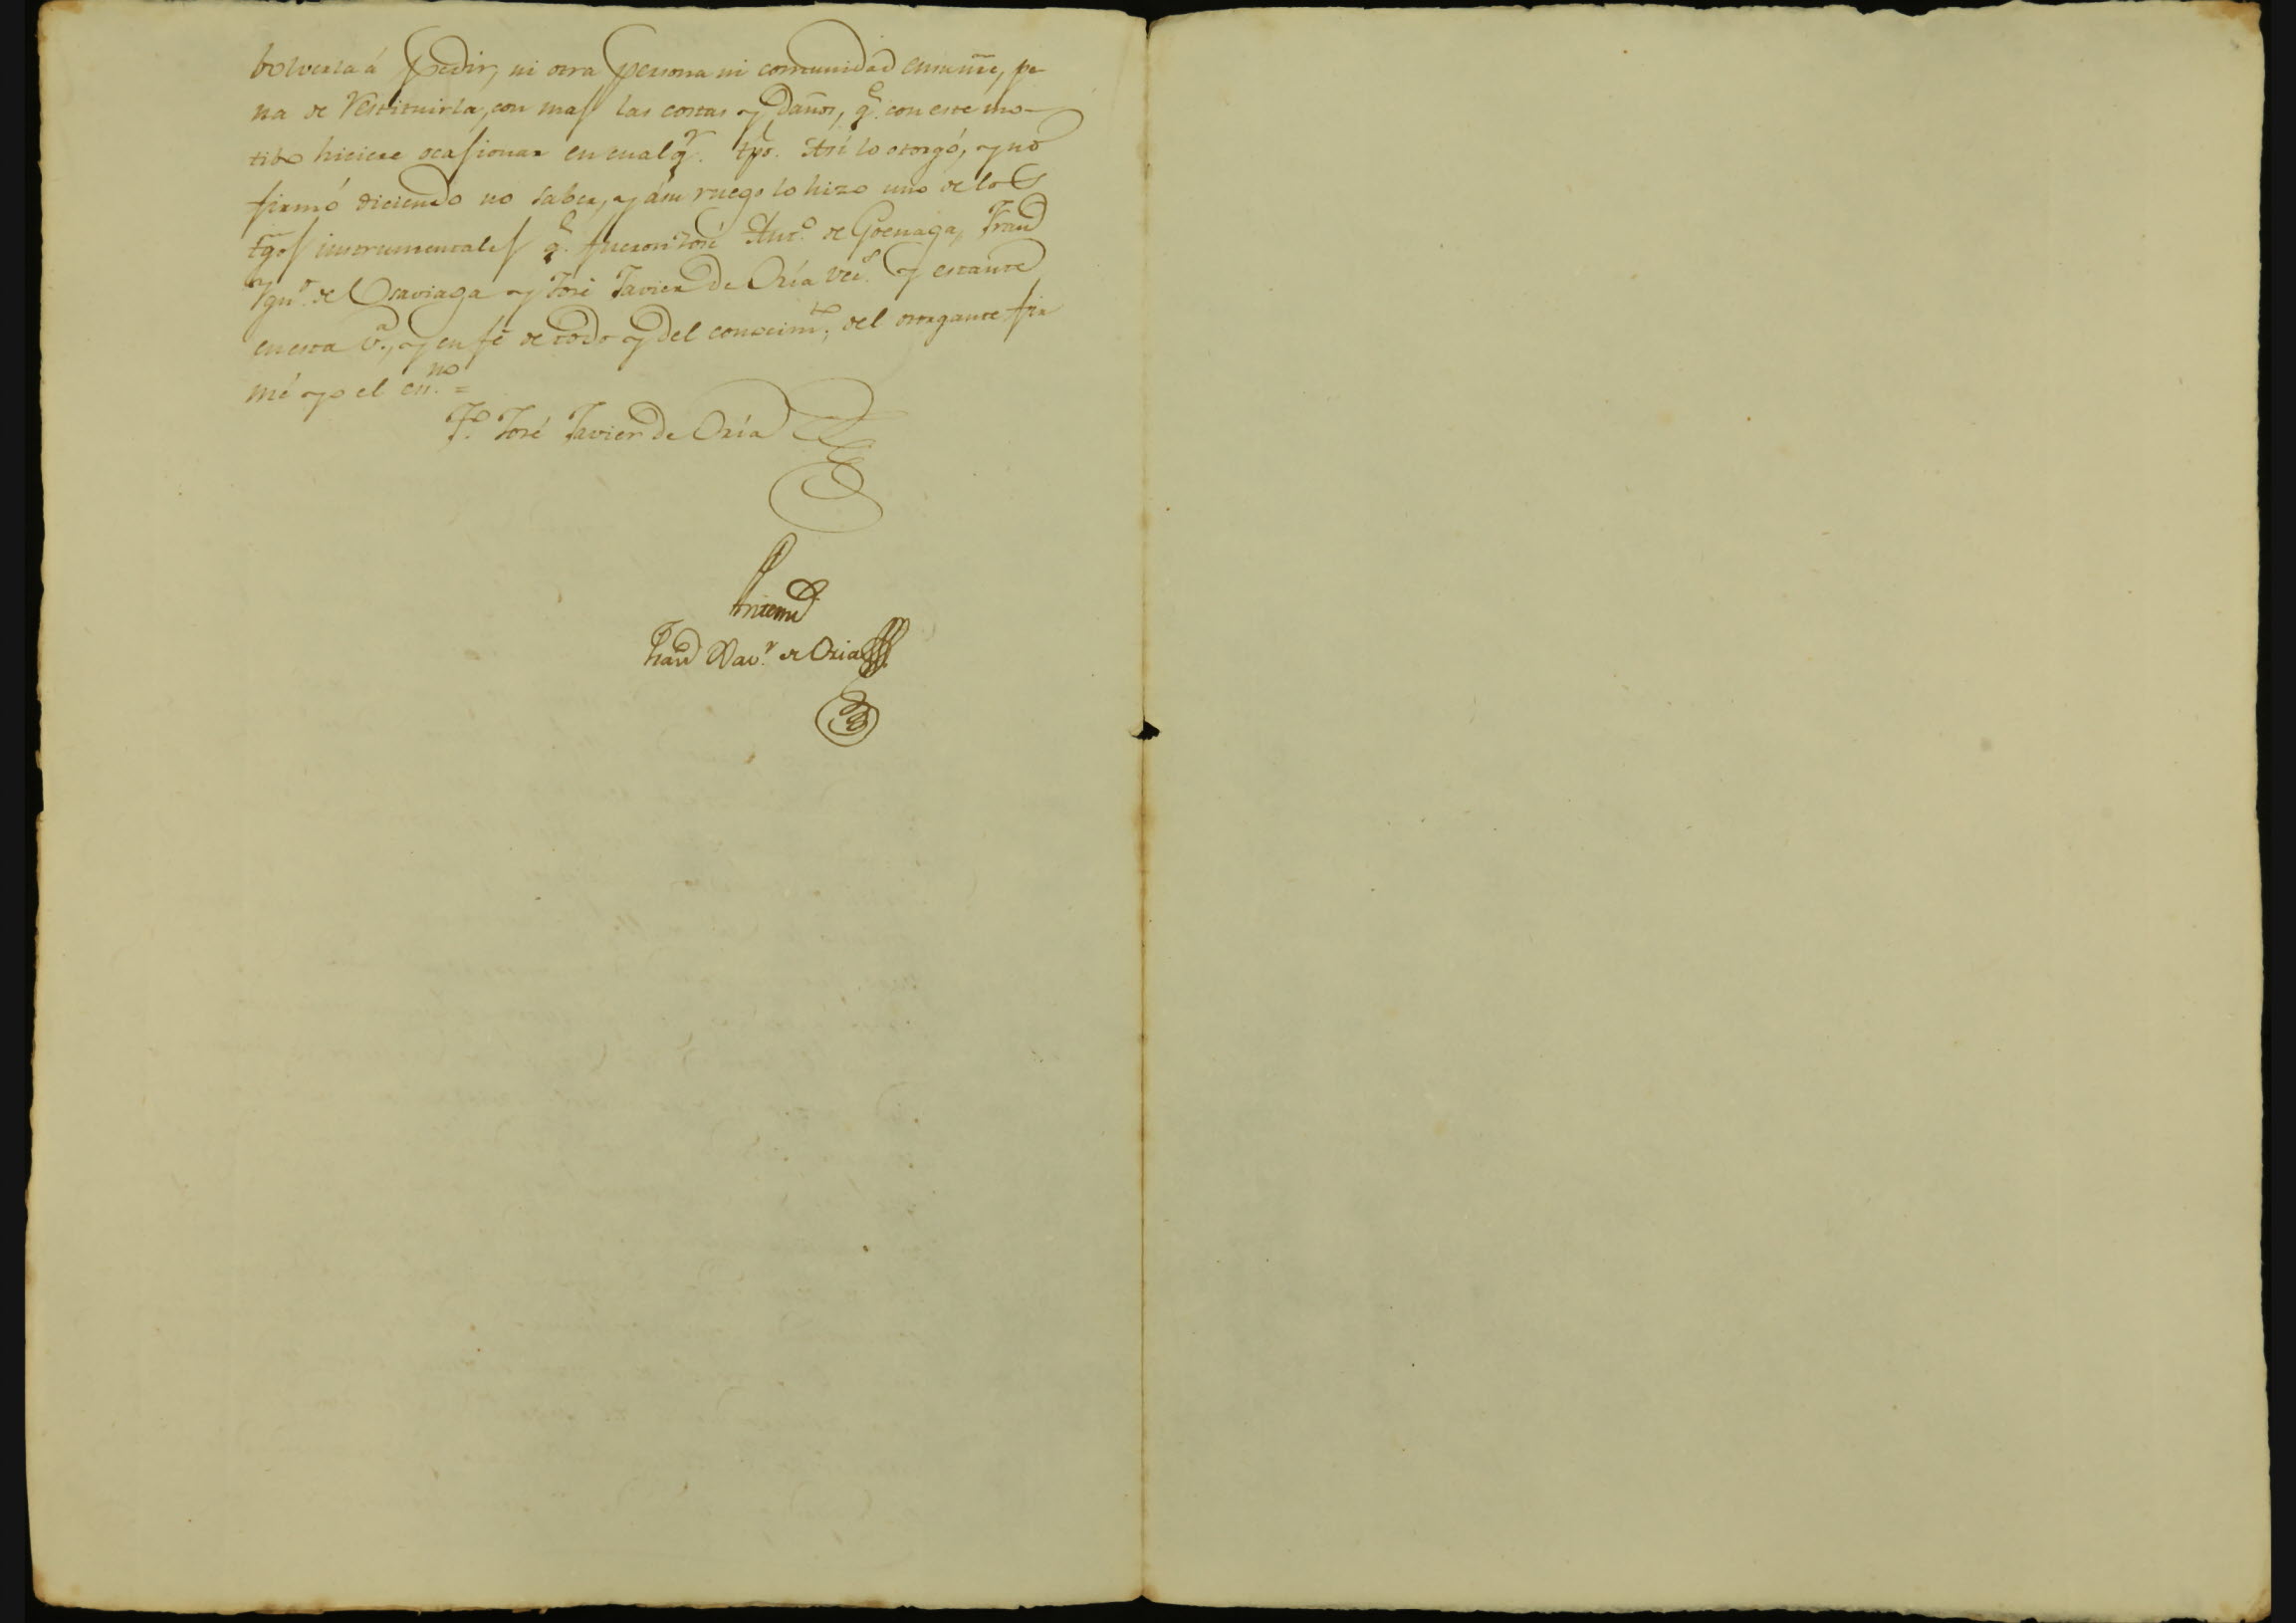 bolverla á pedir, ni otra persona ni comunidad en su nre, pe
na de restituirla, con mas las costas y daños, q.e con este mo-
tibo hiciere ocasionar en cualq.r tpo. Así lo otorgó, y no
firmó diciendo no saber, y á su ruego lo hizo uno de los
tgos instrumentales q.e fueron José Ant.o de Goenaga, Fran.co
Ygn.o de Osaviaga y José Javier de Oria vec.s y estante
en esta v.a, y en fé de todo y del conocim.to del otorgante fir
mé yo el en.no =
T.o José Javier de Oria
Ante mi
Fran.co Xav.r de Oria